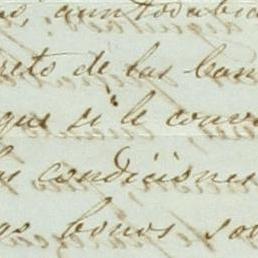 aun todabia
reto de las ban
que si le conv
las condiciones
os bonos so